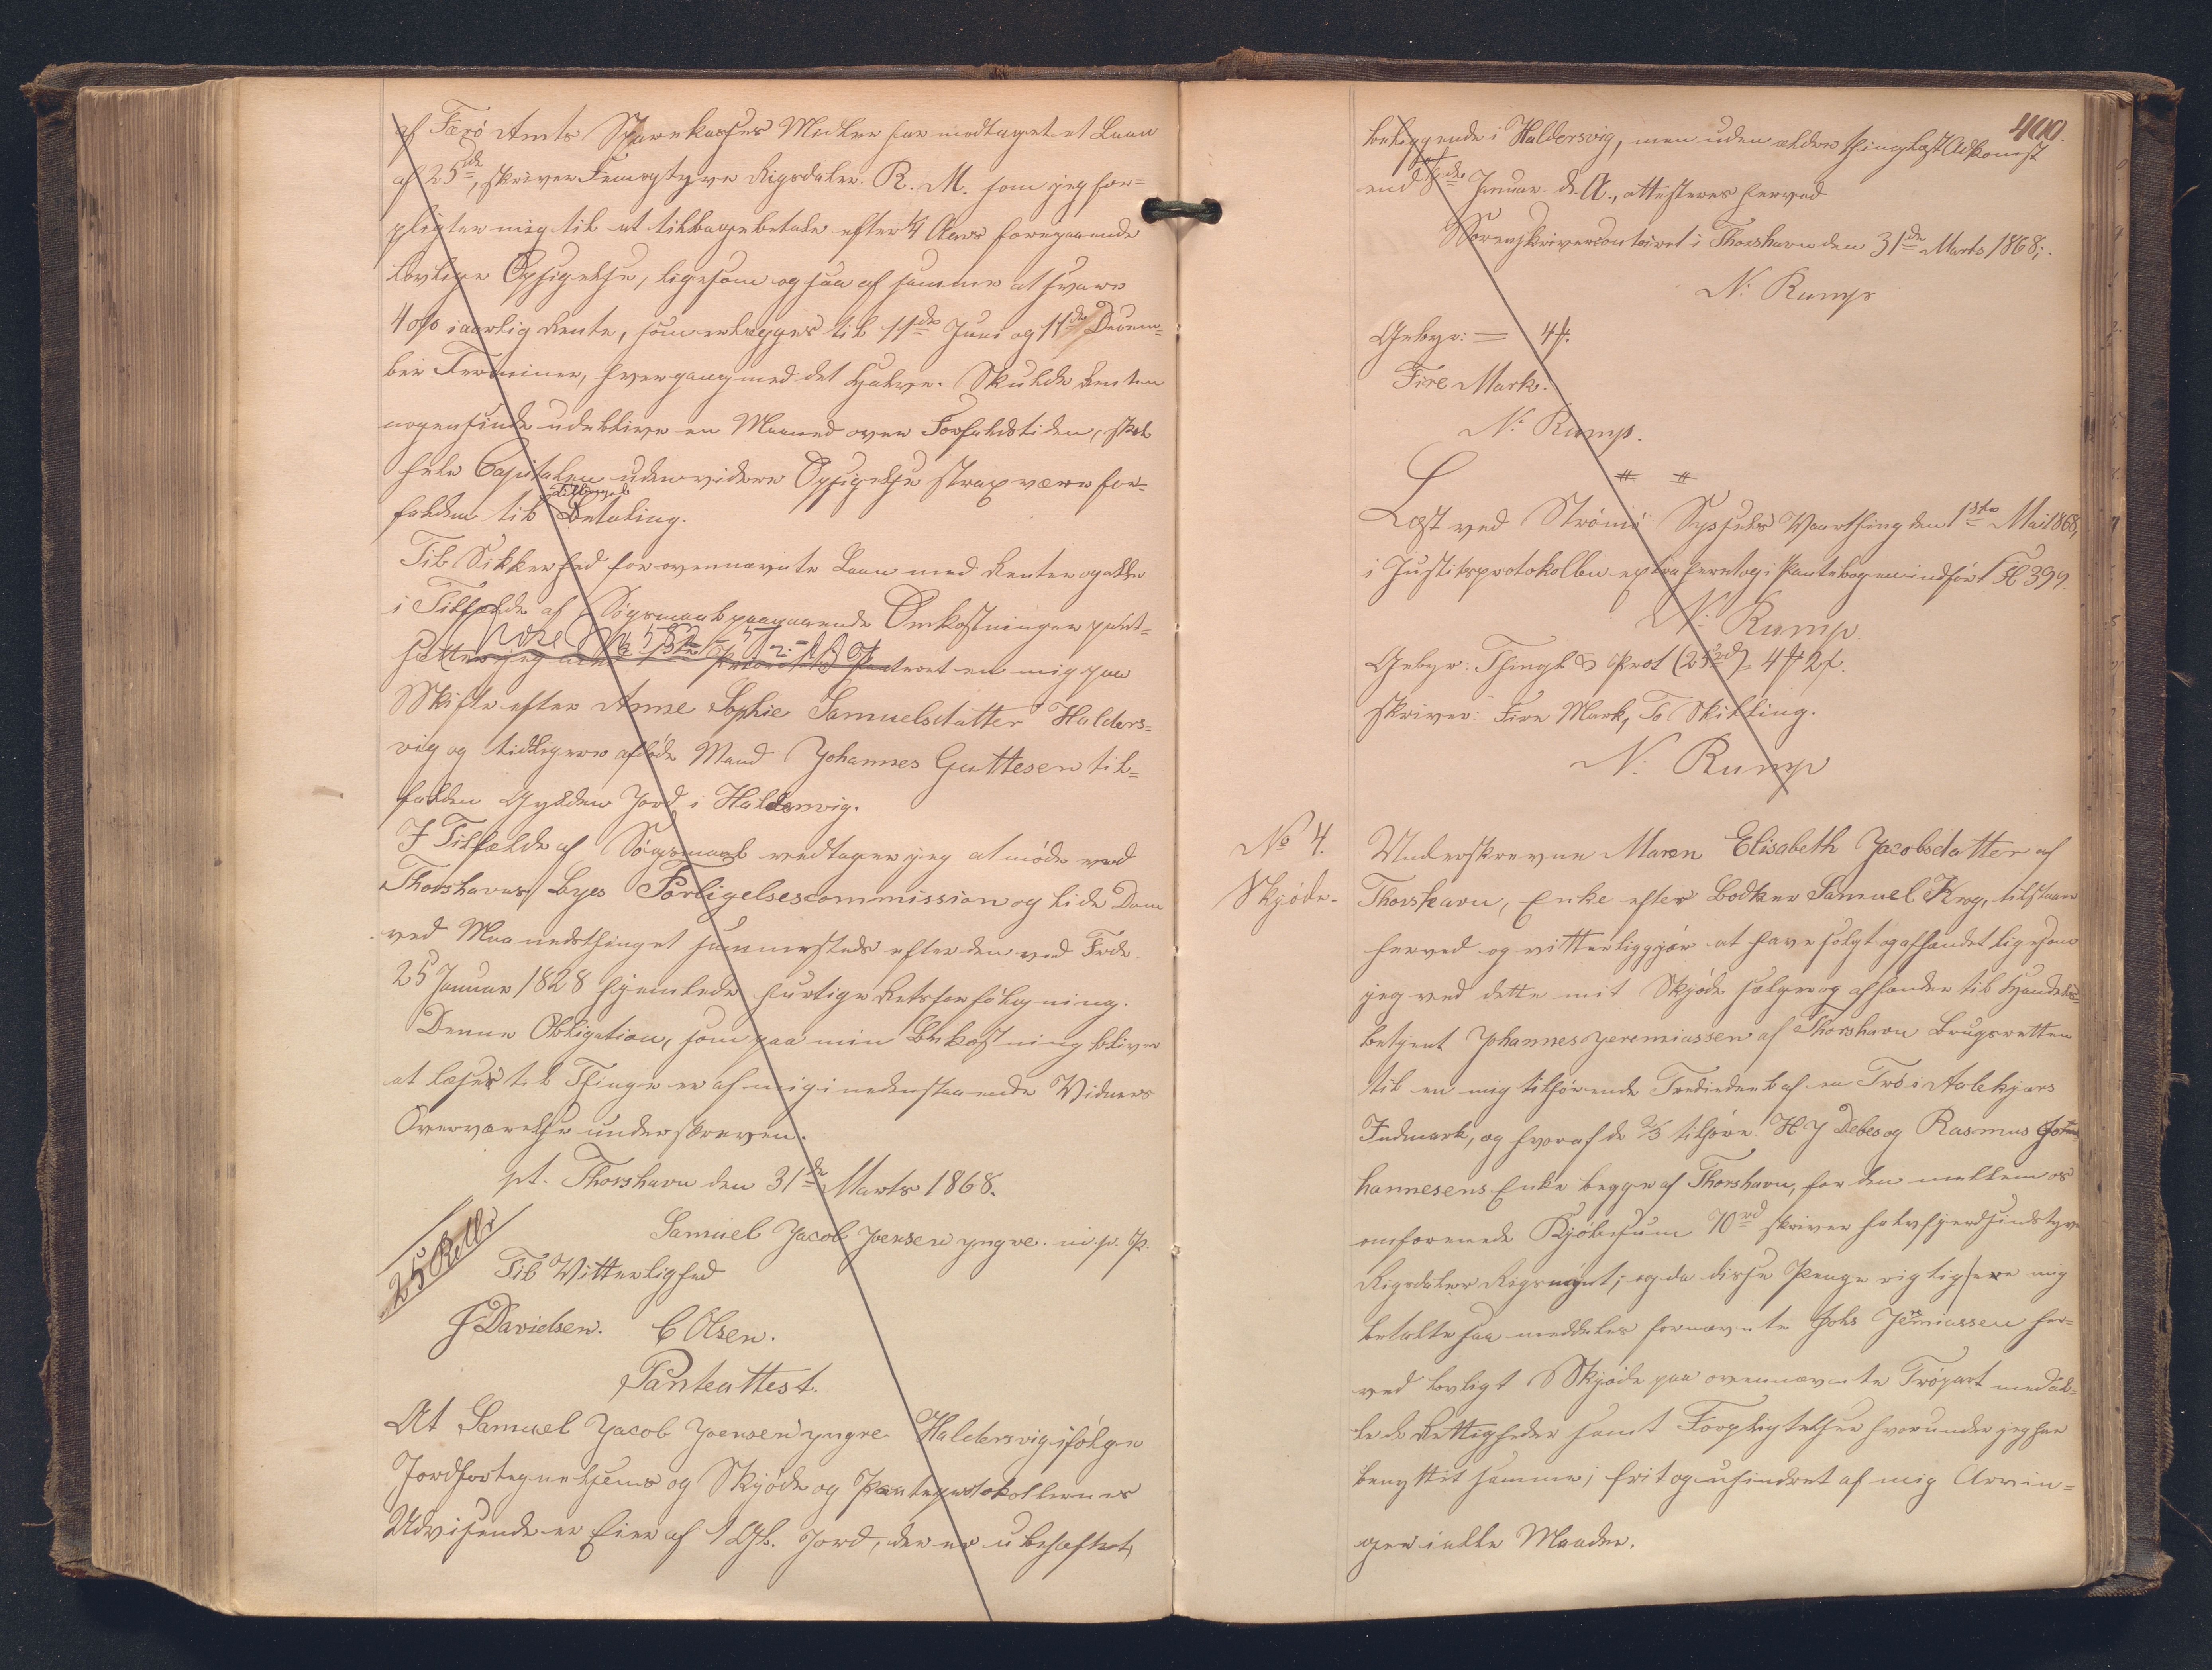 af Færö Amts Sparekasses Midler har modtaget et Laan
af 25 de, skriver Femogtyve Rigsdaler R. M. som jeg for=
pligter mig til at tilbagebetale efter 4 Aars foregaaende
lovlige Opsigelse, ligesom ogsaa af samme at svare
4 o/o i aarlig Rente, som erlægges til 11te Juni og 11te Decem=
ber Terminer, hver gang med det Halve. Skulde Renten
nogensinde udeblive en Maaned over Forfaldstiden, skal
hele Capitalen uden videre Opsigelse strax være for=
falden til Tilbage Betaling.
Til Sikkerhed for ovennævnte Laan med Renter og alle
i Tilfælde af Søgsmaal paagaaende Omkostninger pant=
sætter jeg med 1ste Prioritets Panteret en mig paa
Skifte efter Anne Sophie Samuelsdatter Halders=
vig og tidligere afdøde Mand Johannes Guttesen til=
falden Gylden Jord i Haldersvig.
I Tilfælde af Søgsmaal vedtager jeg at møde ved
Thorshavns Byes Forligelsescommission og lide Dom
ved Maanedsthinget sammesteds efter den ved Frdn.
25 Januar 1828 hjemlede hurtige Retsforfølgning.
Denne Obligation, som paa min Bekostning bliver
at læses til Thinge er af mig i nedenstaaende Vidners
Overværelse underskreven.
pt. Thorshavn den 31te Marts 1868.
25 Rdlr
Samuel Jacob Joensen yngre. m. p. P.
Til Vitterlighed
J Davidsen. C Olsen.
Panteattest.
At Samuel Jacob Joensen yngre Haldersvig ifølge
Jordfortegnelsens og Skjøde og Panteprotokollernes
Udvisende er Eier af 1 Gl. Jord, der er ubehæftet,
400.
beliggende i Haldersvig, men uden ældre thinglæst Adkomst
end Januar d. A., attesteres herved
Sorenskrivercontoiret i Thorshavn den 31te Marts 1868;
N. Rump
Gebyr: = 4 ₰.
Fire Mark.
N. Rump.
Læst ved Strömö Syssels Vaarthing den 1ste Mai 1868,
i Justitsprotokollen extraheret og i Pantebogen indført Fol 399.
N. Rump.
Gebyr: Thingl & Prot (25 rd) = 4 ₰ 2 s.
skriver: Fire Mark, To Skilling.
N. Rump
No 4.
Skjøde.
Underskrevne Maren Elisabeth Jacobsdatter af
Thorshavn, Enke efter Bødker Samuel Krog, tilstaar
herved og vitterliggjør at have solgt og afhændet ligesom
jeg ved dette mit Skjøde sælger og afhænder til Handels=
betjent Johannes Jeremiassen af Thorshavn Brugsretten
til en mig tilhørende Trediedeel af en Trö i Aalekjærs
Indmark, og hvoraf de 2/3 tilhøre H J Debes og Rasmus Jo=
hannesens Enke begge af Thorshavn, for den mellem os
omforenede Kjøbesum 70 rd skriver halvfjerdsindstyve
Rigsdaler Rigsmynt; og da disse Penge rigtig ere mig
betalte saa meddeles fornævnte Johs Jeremiassen her=
ved lovligt Skjøde paa ovennævnte Tröpart med al=
le de Rettigheder samt Forpligtelser hvorunder jeg har
benyttet samme; frit og uhindret af mig Arvin=
ger i alle Maader.